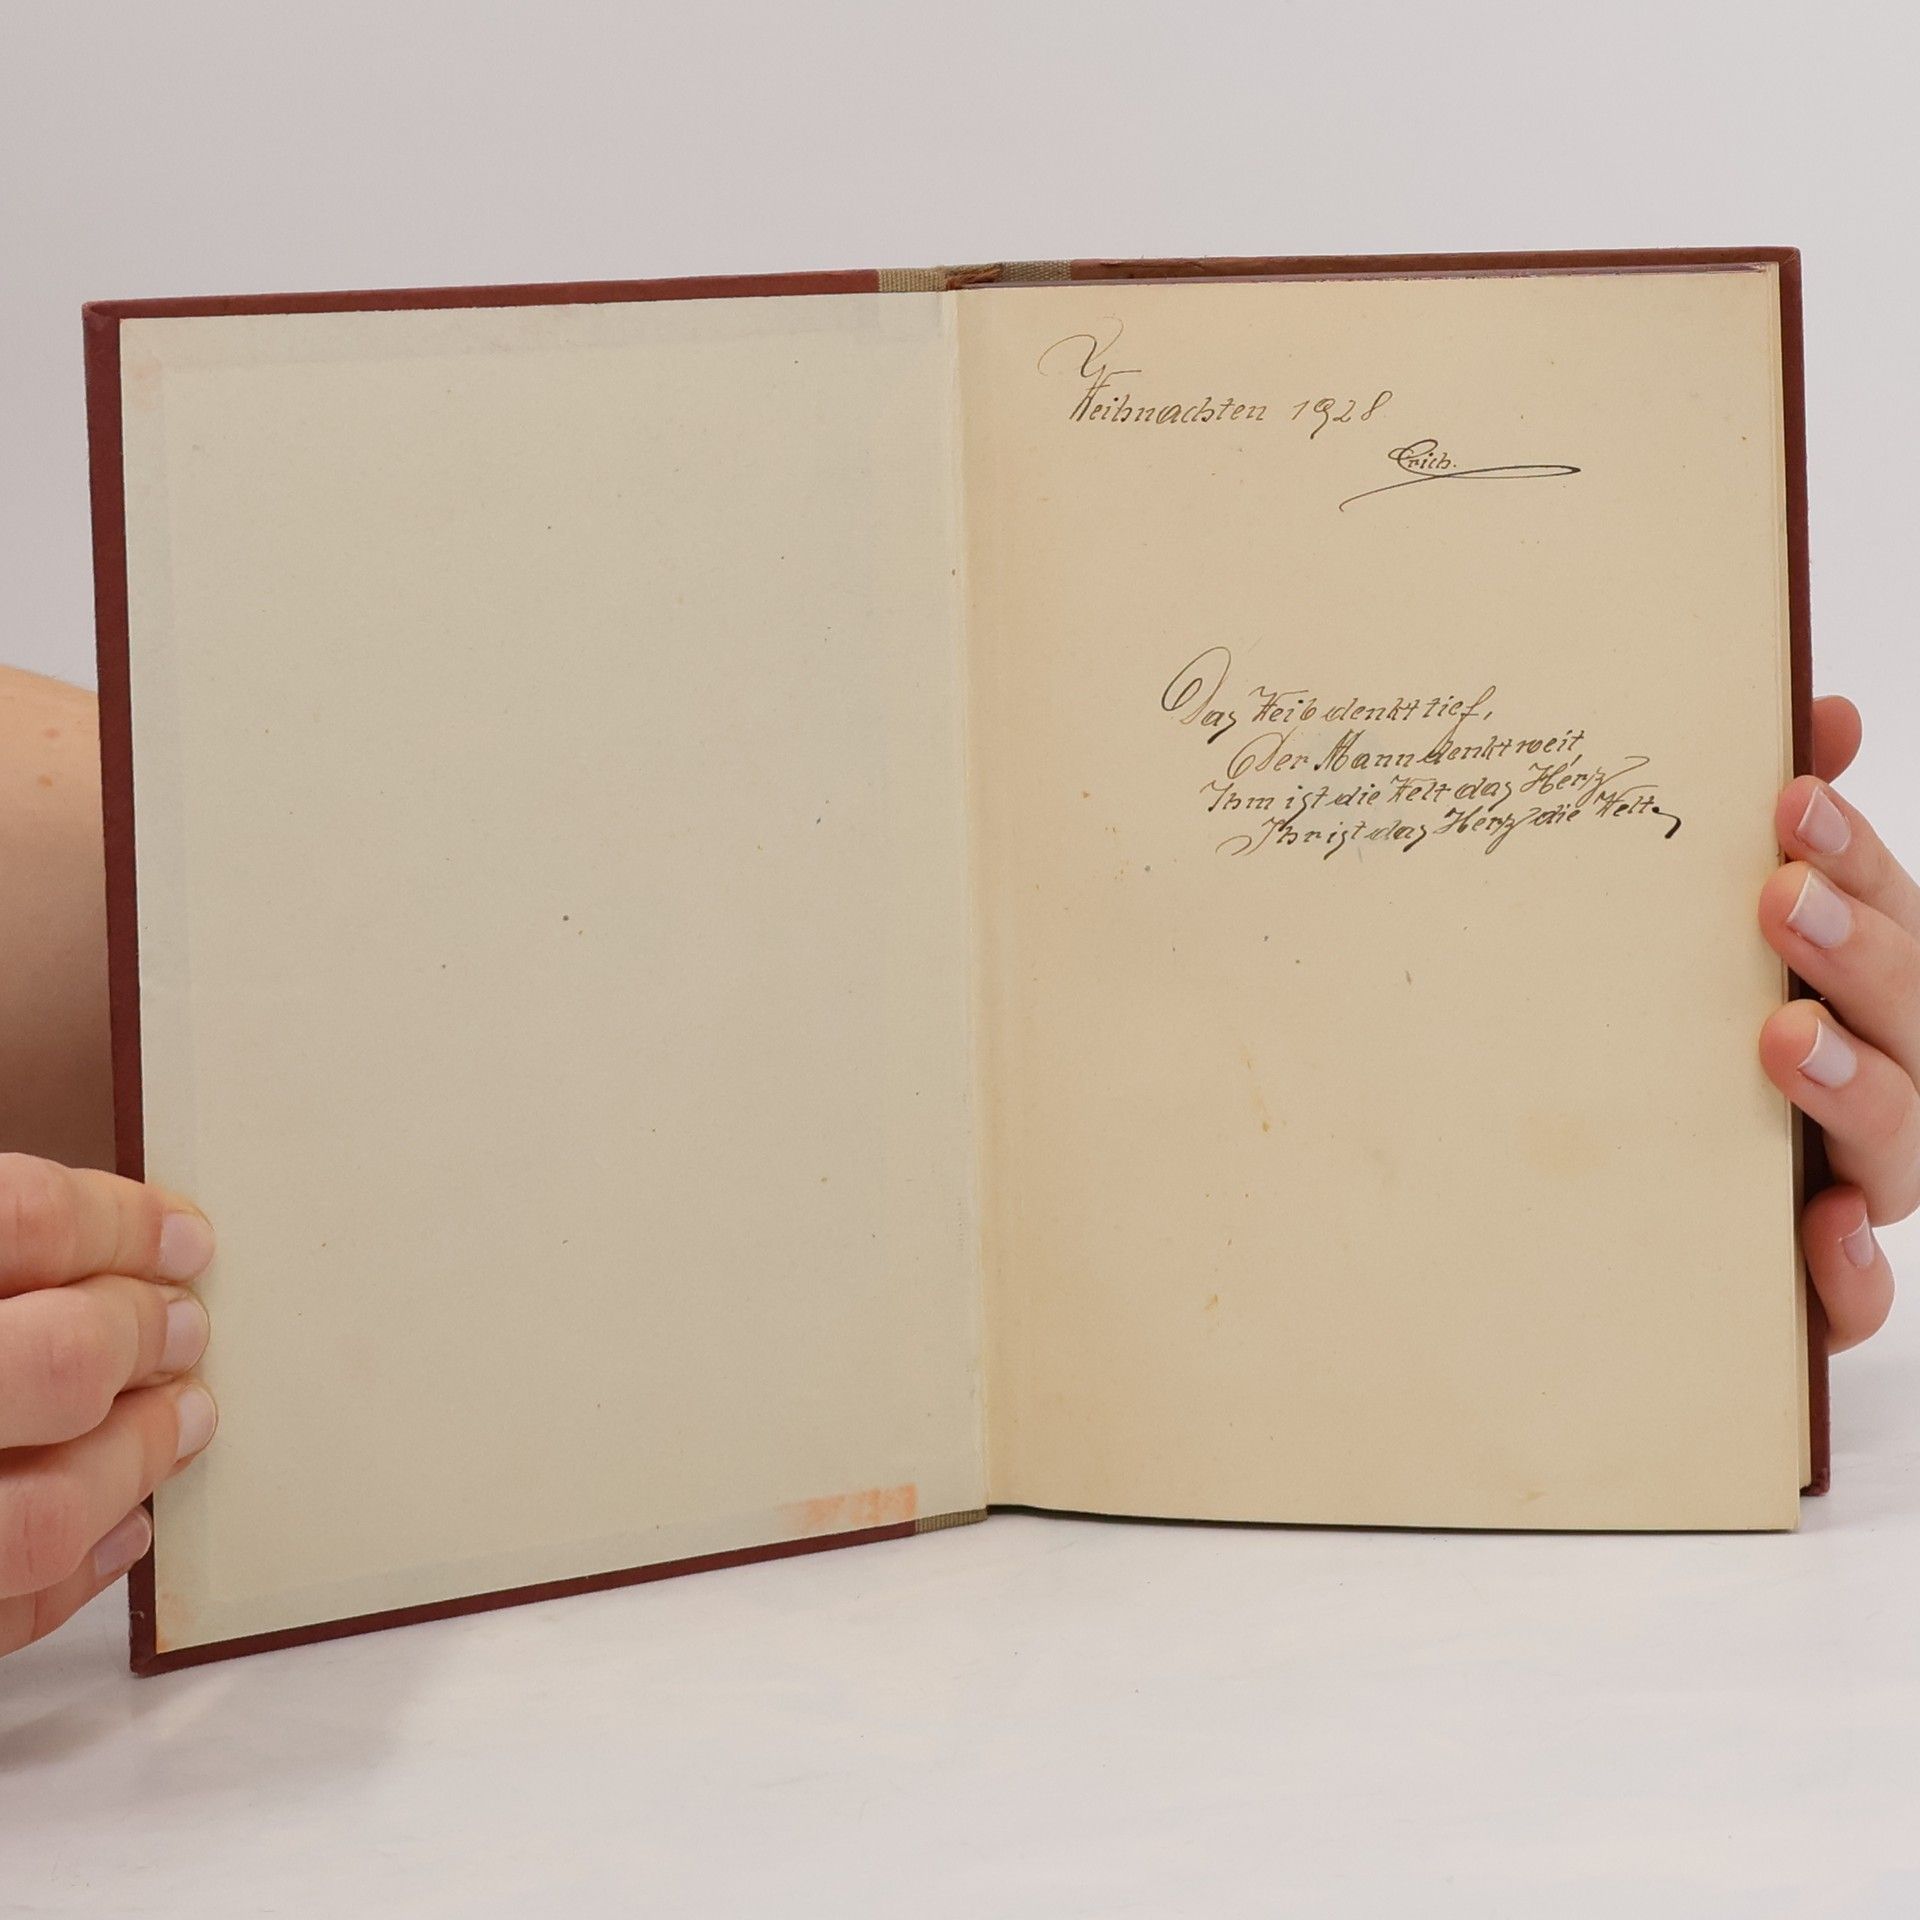 Weihnachten 1928
Erich.
Das Weib denkt tief,
Der Mann denkt weit
Ihm ist die Welt das Herz
Ihr ist das Herz die Welt